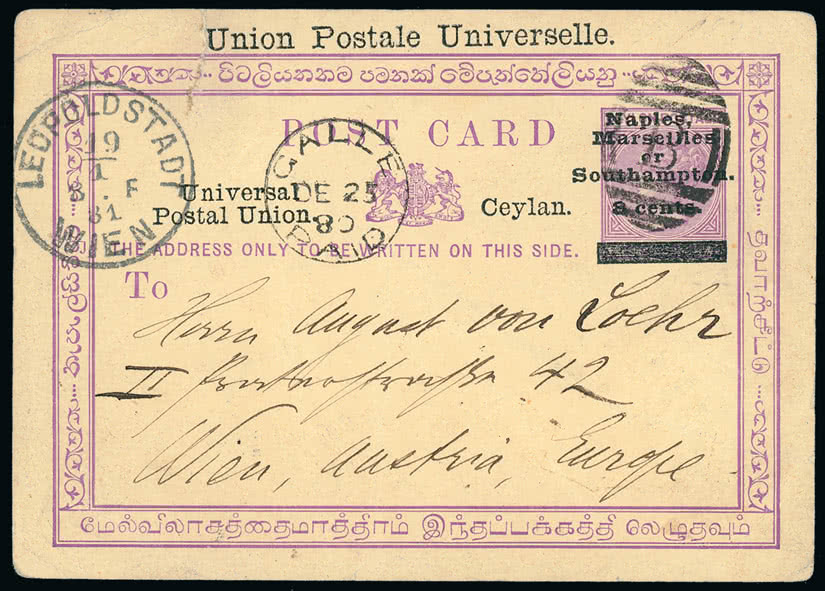 Union Postale Universelle.
POST CARD
LEOPOLDSTADT
19
1
8 . F
81
WIEN
GALLE
DE 25
80
PAID
Naples,
Marseilles
or
Southampton.
8 cents.
B
Universal
Postal Union.
Ceylan.
THE ADDRESS ONLY TO BE WRITTEN ON THIS SIDE.
To
Herrn August von Loehr
II Praterstraße 42
Wien, Austria, Europe
மேல்விலாசத்தைமாத்திரம் இந்தப்பக்கத்தி லெழுதவும்